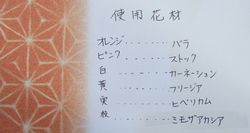 使用花材
オレンジ・・・・・・・バラ
ピンク・・・・・・・ストック
白・・・・・・・カーネーション
黄・・・・・・・フリージア
実・・・・・・・ヒペリカム
枝・・・・・・・ミモザアカシア